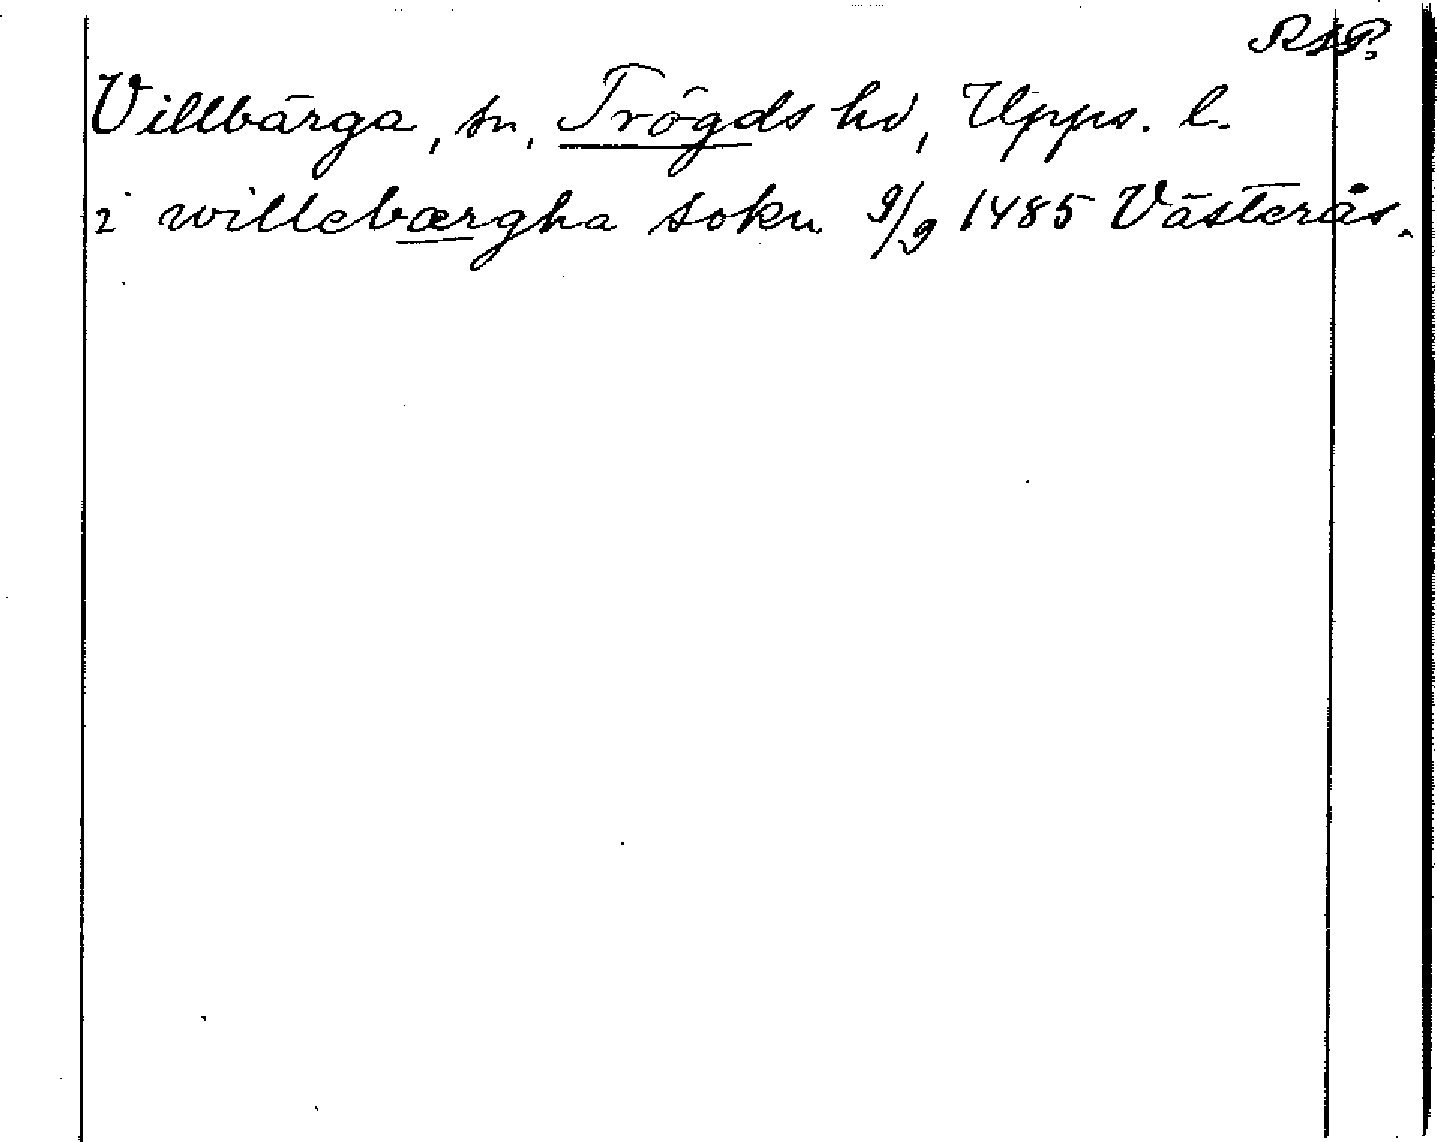 RAP.
Villbärga, sn, Trögds hd, Upps. l.
i willebærgha sokn 9/9 1485 Västerås.